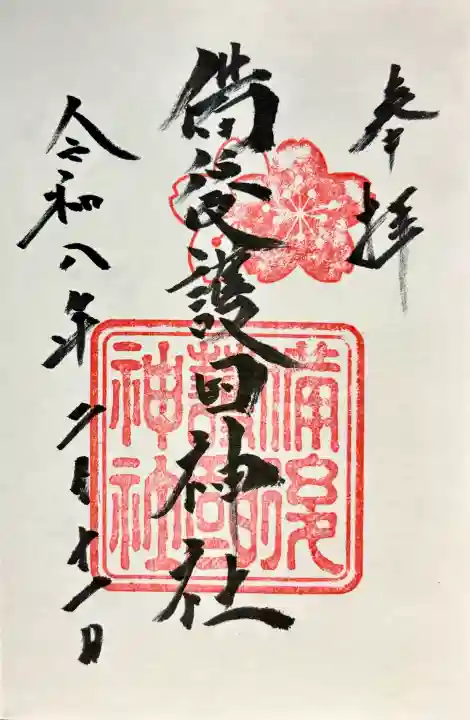 奉拝
備後護国神社
令和八年 月十一日
備後
護国
神社